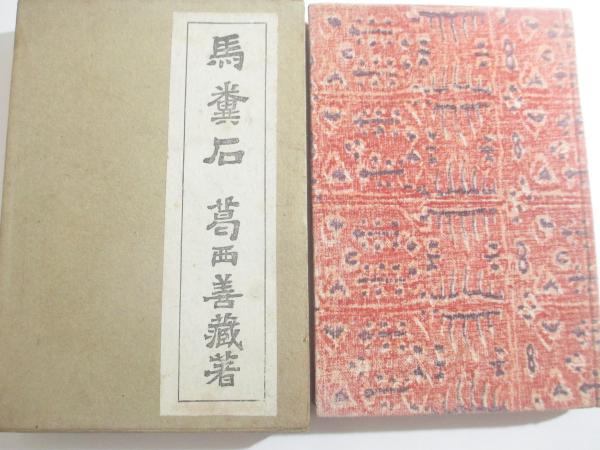 馬糞石 葛西善藏著